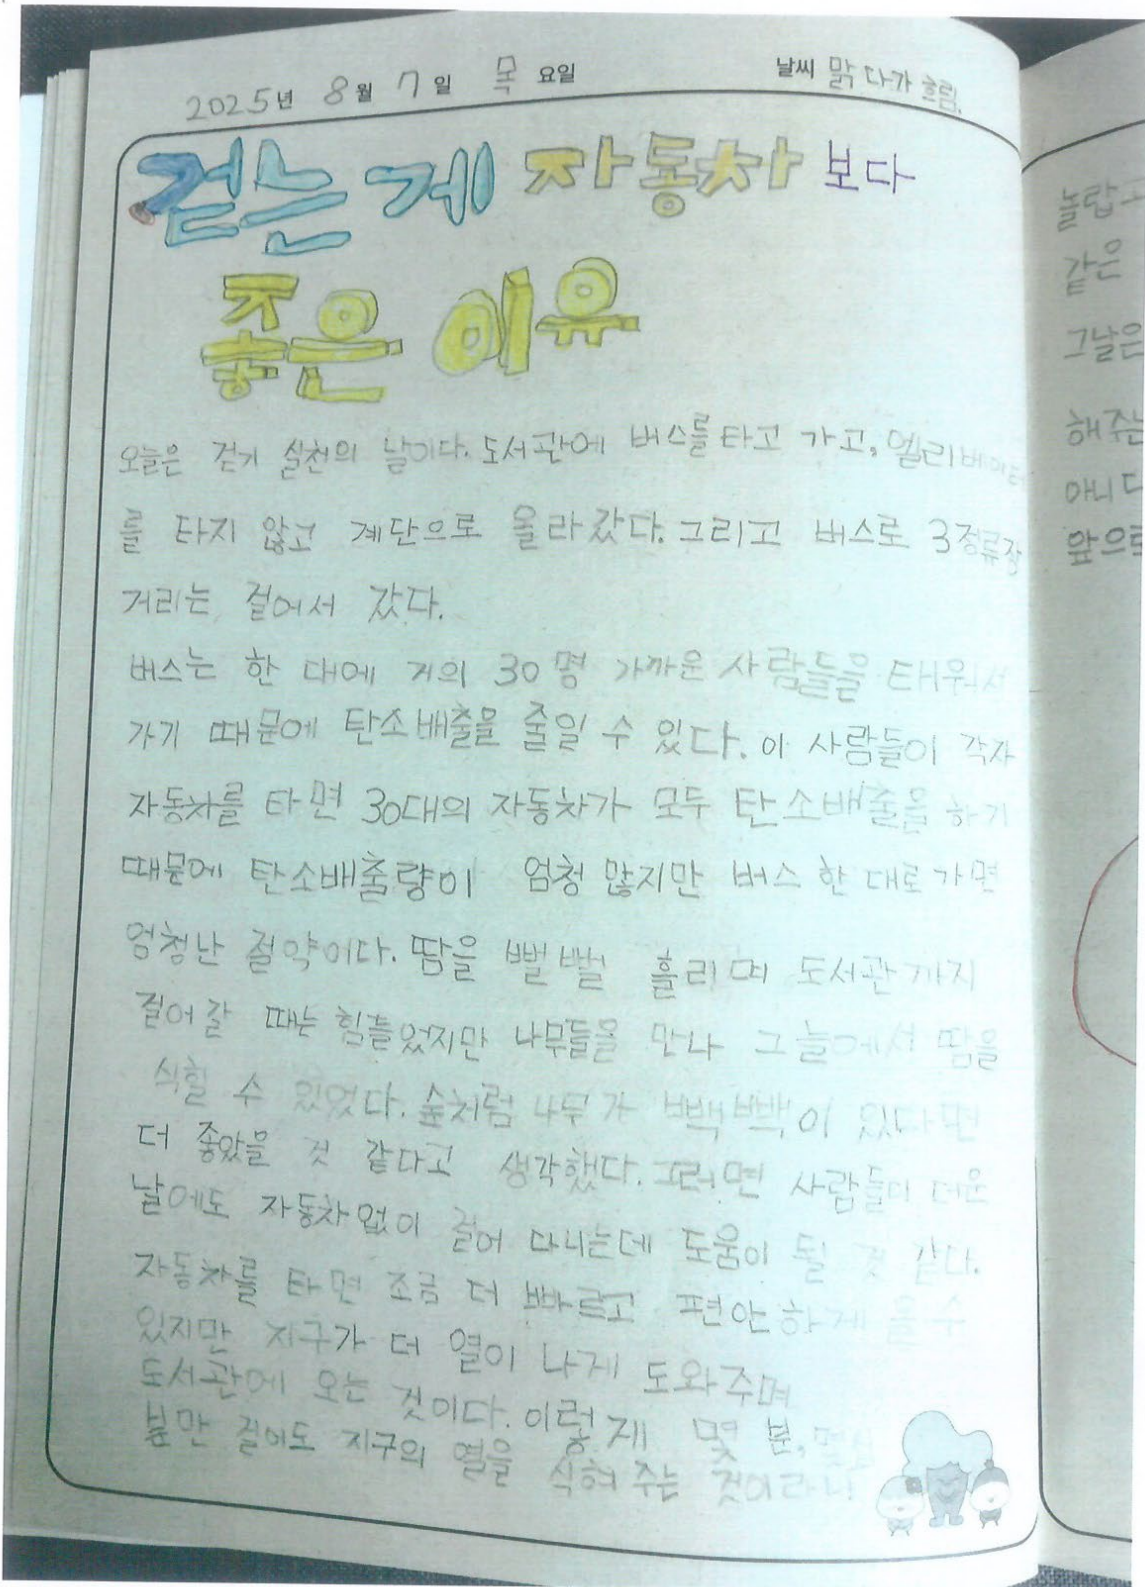 2025년 8월 7일 목요일 날씨 맑다가 흐림.
걷는 게 자동차 보다
좋은 이유
오늘은 걷기 실천의 날이다. 도서관에 버스를 타고 가고, 엘리베이터
를 타지 않고 계단으로 올라갔다. 그리고 버스로 3정류장
거리는 걸어서 갔다.
버스는 한 대에 거의 30명 가까운 사람들을 태워서
가기 때문에 탄소배출을 줄일 수 있다. 이 사람들이 각자
자동차를 타면 30대의 자동차가 모두 탄소배출을 하기
때문에 탄소배출량이 엄청 많지만 버스 한 대로 가면
엄청난 절약이다. 땀을 뻘뻘 흘리며 도서관까지
걸어갈 때는 힘들었지만 나무들을 만나 그늘에서 땀을
식힐 수 있었다. 숲처럼 나무가 빽빽이 있다면
더 좋았을 것 같다고 생각했다. 그러면 사람들이 더운
날에도 자동차없이 걸어 다니는데 도움이 될 것 같다.
자동차를 타면 조금 더 빠르고 편안하게 올수
있지만 지구가 더 열이 나게 도와주며
도서관에 오는 것이다. 이렇게 몇 분,
만 걸어도 지구의 열을 식혀 주는 것이라니
놀랍고
같은
그날은
해주는
아니다
앞으로